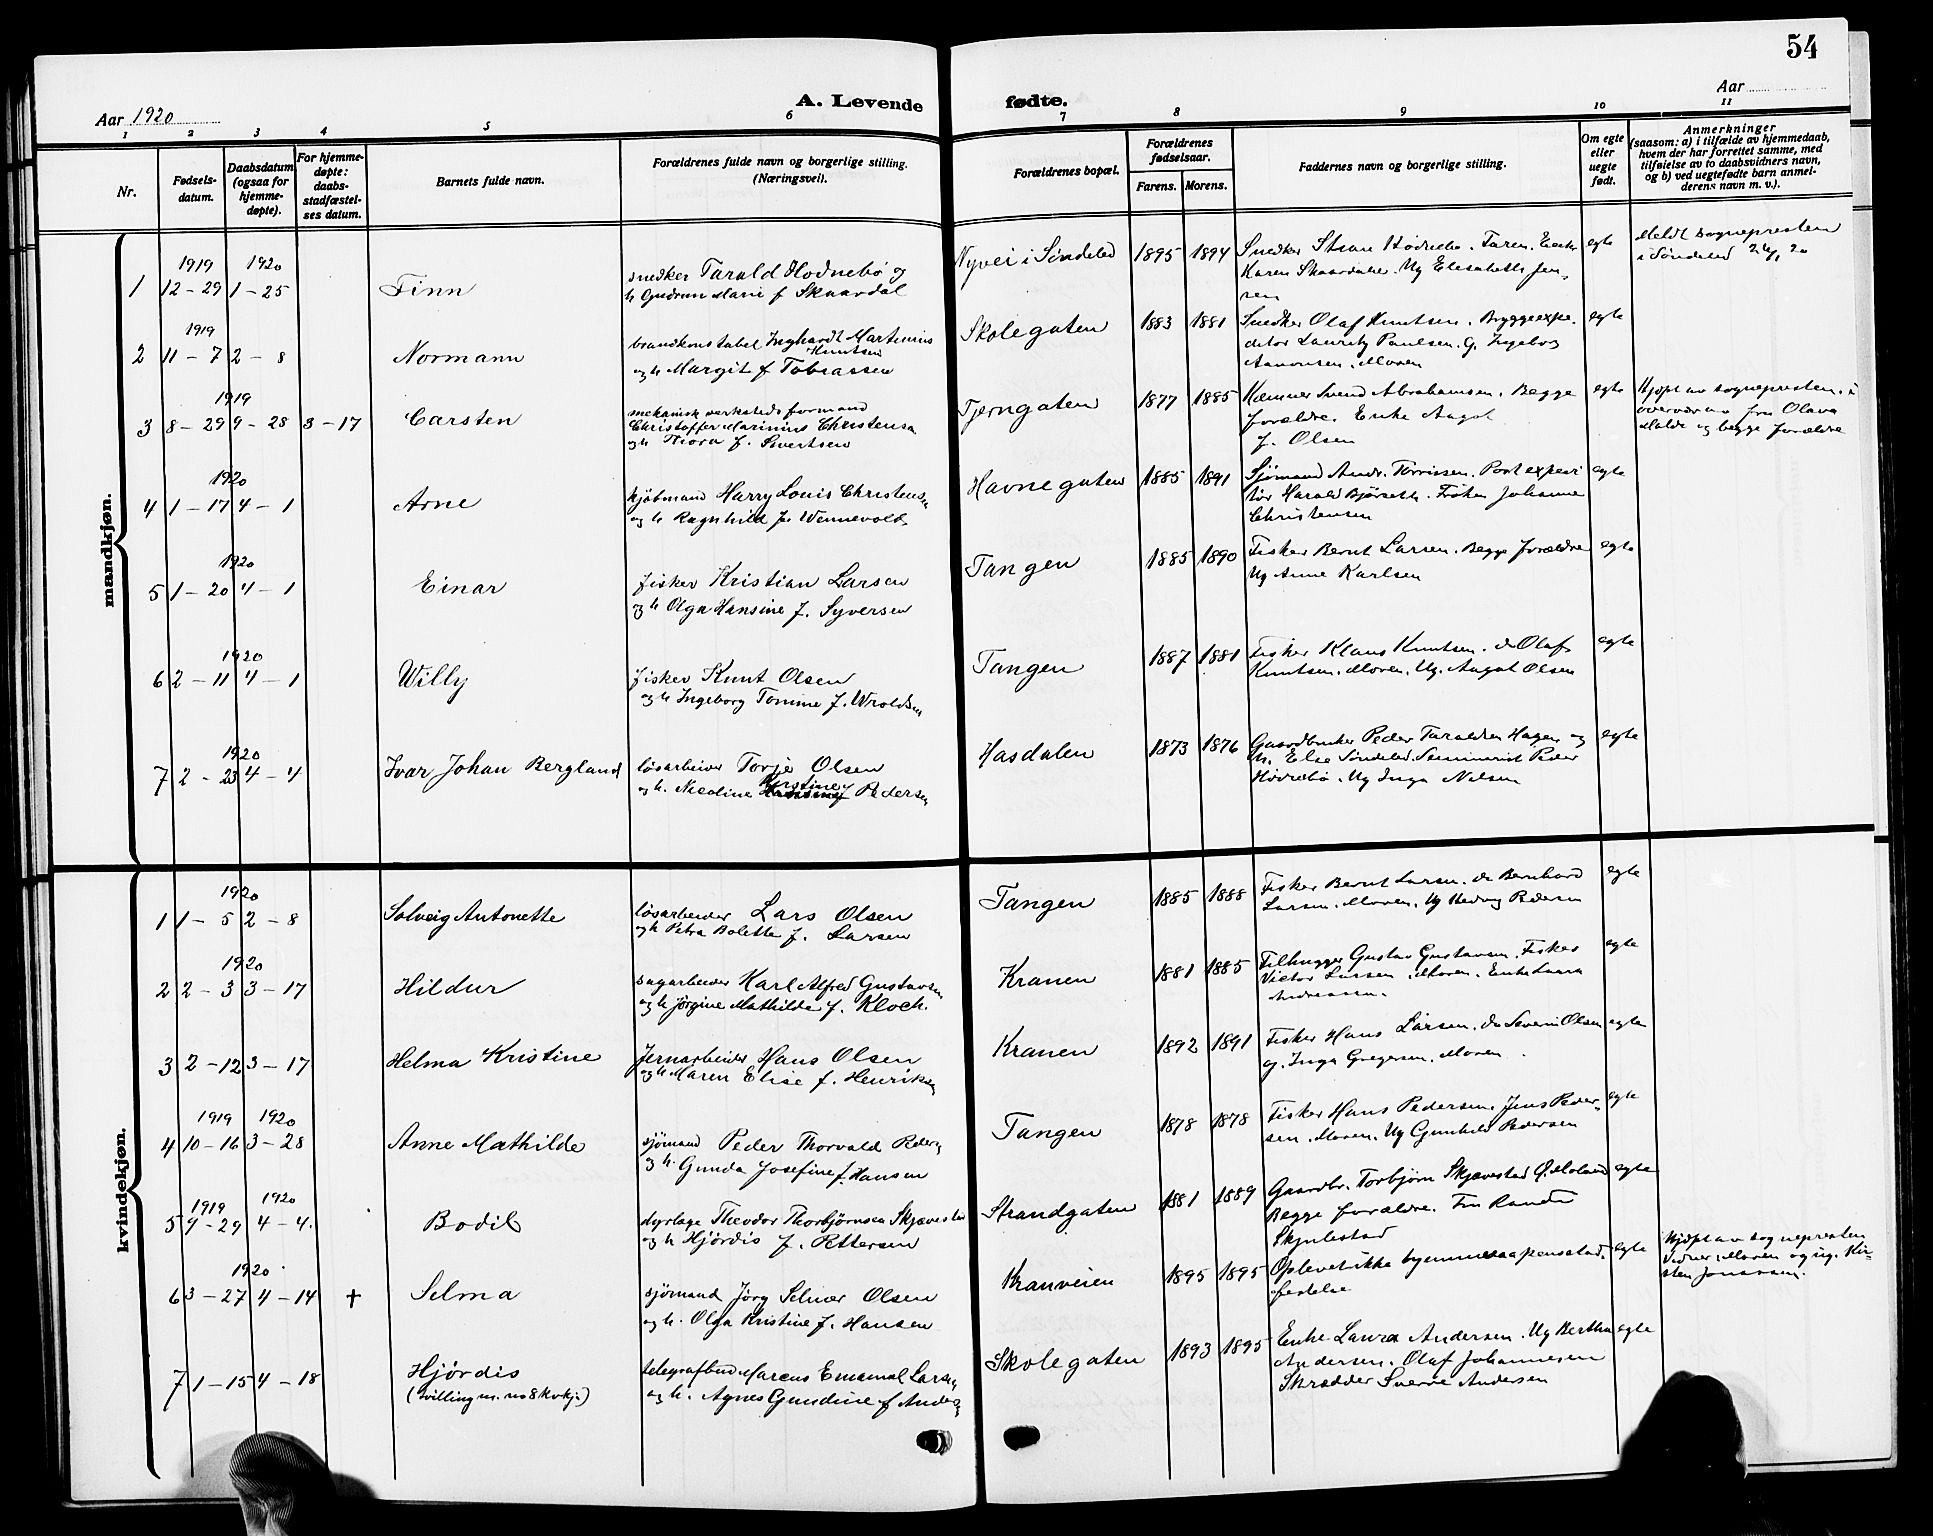 54
Aar 1920
A. Levende
fødte.
Aar
1 2 3 4 5 6 7 8 9 10 11
Nr.
Fødsels-
datum.
Daabsdatum
(ogsaa for
hjemme-
døpte).
For hjemme-
døpte:
daabs-
stadfæstel-
ses datum.
Barnets fulde navn.
Forældrenes fulde navn og borgerlige stilling.
(Næringsvei).
Forældrenes bopæl.
Forældrenes
fødselsaar.
Farens. Morens.
Faddernes navn og borgerlige stilling.
Om egte
eller
uegte
født.
Anmerkninger
(saasom: a) i tilfælde av hjemmedaab,
hvem der har forrettet samme, med
tilføielse av to daabsvidners navn,
og b) ved uegtefødte barn anmel-
derens navn m. v.).
mandkjøn.
1919 1920
1 12-29 1-25
Finn
snedker Tarald Hodnebø og
h Gudrun Marie f Skaardal
Nyvei i Søndeled
1895 1894
Snedker Hødnebø. Faren. Enke
Karen Skaardal. Ug Elisabeth Jen-
sen
egte
Meldt sognepresten
i Søndeled
1919
2 11-7 2-8
Normann
brandkonstabel Inghardt Martinius
Knutsen
og h Margit f Tobiassen
Skolegaten
1883 1881
Snedker Olaf Knutsen. Bryggeexpe-
ditør Lauritz Paulsen. G. Ingeborg
Aanonsen. Moren
egte
1919
3 8-29 9-28 3-17
Carsten
mekanisk verksteds formand
Christoffer Marinius Christensen
og h Thora f. Sivertsen
Tjerngaten
1877 1885
Kæmner Svend Abrahamsen. Begge
forældre. Enke Aagot
f. Olsen
egte
Hjdpt av sognepresten i
overvær av fru Olava
Molde og begge forældre
1920
4 1-17 4-1
Arne
kjøbmand Harry Louis Christensen
og h Ragnhild f. Wennevold
Havnegaten
1885 1891
Sjømand Andr. Tørrissen. Postexpedi
tør Harald Bjørseth. Frøken Johanne
Christensen
egte
1920
5 1-20 4-1
Einar
fisker Kristian Larsen
og h Olga Hansine f. Syversen
Tangen
1885 1890
Fisker Bernt Larsen. Begge forældre
Ug Anne Karlsen
egte
1920
6 2-11 4-1
Willy
fisker Knut Olsen
og h Ingeborg Tomine f. Wroldsen
Tangen
1887 1881
Fisker Klaus Knutsen. do Olaf
Knutsen. Moren. Ug. Aagot Olsen
egte
1920
7 2-23 4-4
Ivar Johan Bergland
løsarbeider Torje Olsen
Kirstine
og h. Nicoline f Pedersen
Hasdalen
1873 1876
Gaardbruker Peder Taraldsen Hagen og
h. Else Søndeled. Seminarist Peder
Hødnebø. Ug Inga Nilsen
egte
kvindekjøn.
1920
1 1-5 2-8
Solveig Antonette
løsarbeider Lars Olsen
og h Petra Bolette f. Larsen
Tangen
1885 1888
Fisker Bernt Larsen. do Bernhard
Larsen. Moren. Ug Hedvig Pedersen
egte
1920
2 2-3 3-17
Hildur
sagarbeider Karl Alfred Gustavsen
og h Jørgine Mathilde f. Kloch.
Kranen
1881 1885
Filhugger Gustav Gustavsen. Fisker
Victor Larsen. Moren. Enke Laura
Andreassen.
egte
3 2-12 3-17
Helma Kristine
Jernarbeider Hans Olsen
og h Maren Elise f. Henriksen
Kranen
1892 1891
Fisker Hans Larsen. do Severin Olsen
g. Inga Gregersen. Moren.
egte
1919 1920
4 10-16 3-28
Anne Mathilde
sjømand Peder Thorvald Pedersen
og h. Gunda Josefine f. Hansen
Tangen
1878 1878
Fisker Hans Pedersen. Jens Peder-
sen. Moren. Ug Gunhild Pedersen
egte
1919 1920
5 9-29 4-4.
Bodil
dyrlæge Theodor Thorbjørnsen Skjævestad
og h Hjørdis f. Pettersen
Strandgaten
1881 1889
Gaardbr. Torbjørn Skjævestad
Begge forældre. Fru
egte
1920
6 3-27 4-14 †
Selma
sjømand Jørg Selmer Olsen
og h. Olga Kristine f. Hansen
Kranveien
1895 1895
Oplevet ikke hjemmedaapens stad-
festelse
egte
Hjdpt av sognepresten
Vidner: Moren og ug. Kir-
sten Jonassen.
7 1-15 4-18
Hjørdis
(tvilling m. no 8 kvkj.)
telegrafbud Marcus Emanuel Larsen
og h. Agnes Gundine f Andersen
Skolegaten
1893 1895
Enke Laura Andersen. Ug Bertha
Andersen. Olaf Johannesen
Skrædder Sverre Andersen
egte